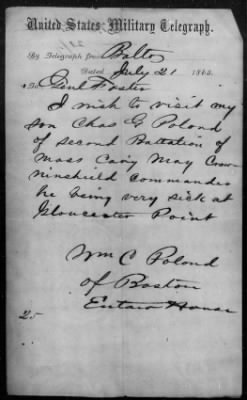 United States Military Telegraph.
By Telegraph from Balto
Dated July 21 1863.
To Genl Foster
I wish to visit my
son Chas G Poland
of second Battalion of
Mass Cavy Maj Crow-
ninshield commander
he being very sick at
Gloucester Point
Wm C Poland
of Boston
Eutaw House
25